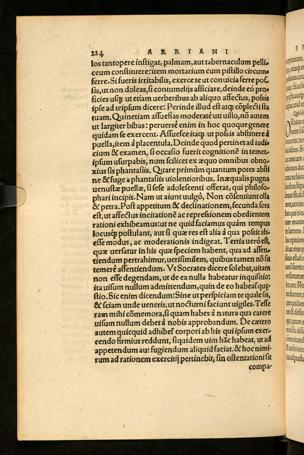 224 ARRIANI
los tantopere instigat, palmam, aut tabernaculum pelli-
ceum constituere: item mortarium cum pistillo circum-
ferre. Si fueris irritabilis, exerce te ut conuicia ferre pos-
sis, ut non doleas, si contumelijs afficiare, deinde eo pro-
ficies usque ut etiam uerberibus ab aliquo affectus, possis
ipse ad teipsum dicere: Perinde illud est atque complecti sta
tuam. Quinetiam assuefias moderate uti uillo, nõ autem
ut largiter bibas: peruersè enim in hoc quoque genere
quidam se exercent. Assuefce itaque ut possis abstinere à
puella, item à placentula. Deinde quod pertinet ad iudi-
cium & examen, si occasio fuerit cognitionẽ in temet-
ipsum usurpabis, num scilicet ex æquo omnibus obno-
xius sis phantasijs. Quare primùm quantum potes absti
ne & fuge a phantasijs uiolentioribus. Inæqualis pugna
uenustæ puellæ, si sese adolescenti offerat, qui philoso-
phari incipit. Nam ut aiunt uulgò, Non consentiunt olla
& petra. Post appetitum & declinationem, secunda fors
est, ut affectus incitationẽ ac repressionem obedientem
rationi exhibeamus: ut ne quid faciamus quàm tempus
locusque postulant, aut si qua res est alia à qua possit ab-
esse modus, ac moderationis indigeat. Tertia uerò est,
quæ uersatur in his quæ speciem habent, quæ ad assen-
tiendum pertrahimur, uerisimilem, quibus tamen nõ sit
temerè assentiendum. Vt Socrates dicere solebat, uitam
non esse degendam, ut de ea nulla habeatur inquisitio:
ita uisum nullum admittendum, quin de eo habeas quę-
stio. Sic enim dicendum: Sine ut perspiciam te qualis sis,
& sciam unde ueneris, ut nocturni faciunt uigiles: Tesse
ram mihi cõmemora, si quam habes à natura qua carere
uisum nullum debet à nobis approbandum. De cætero
autem quicquid adhibet corpori ab his qui ipsum exer-
cendo firmius reddunt, siquidem uim hãc habeat, ut ad
appetendum aut fugiendum aliquid faciat, & hoc nimi-
rum ad rationem exercitij pertinebit, sin ostentationi sit
compa-